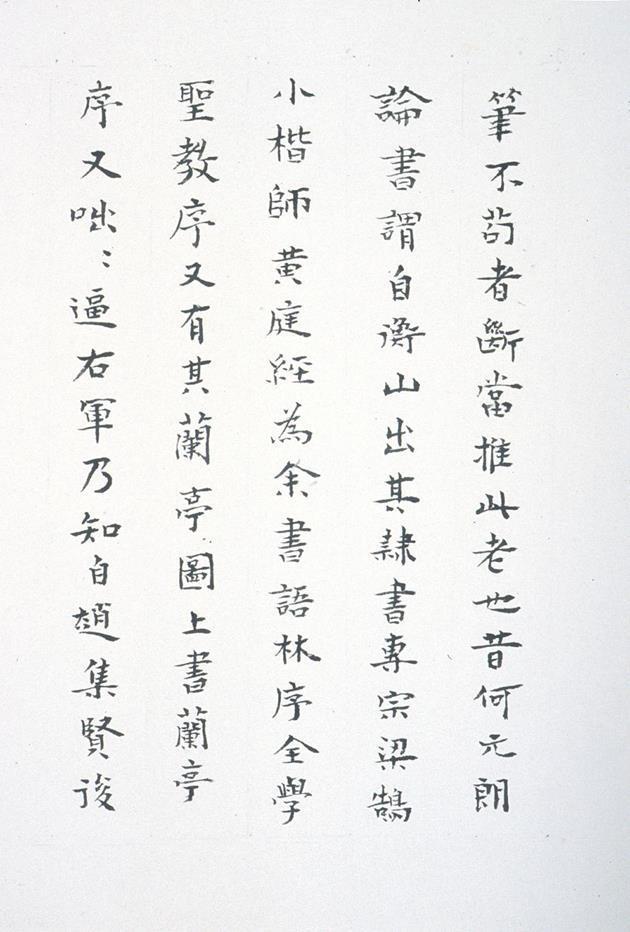 筆不苟者斷當推此老也昔何元朗
論書謂自衡山出其隸書專宗梁鵠
小楷師黄庭經為余書語林序全學
聖教序又有其蘭亭圖上書蘭亭
序又咄〻逼右軍乃知自趙集賢後